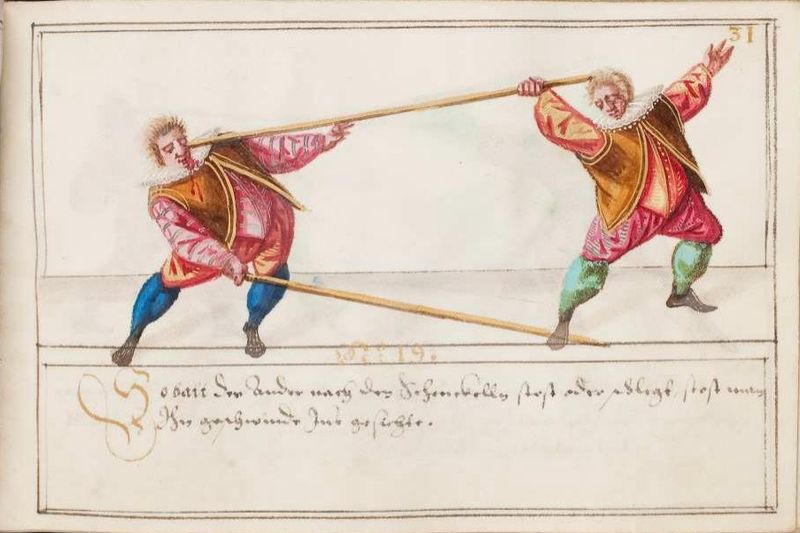 31
N: 19.
Sobalt der Ander nach den Schenckelln stost oder schlegt, stost man
Ihn geschwinde Ins gesichte.